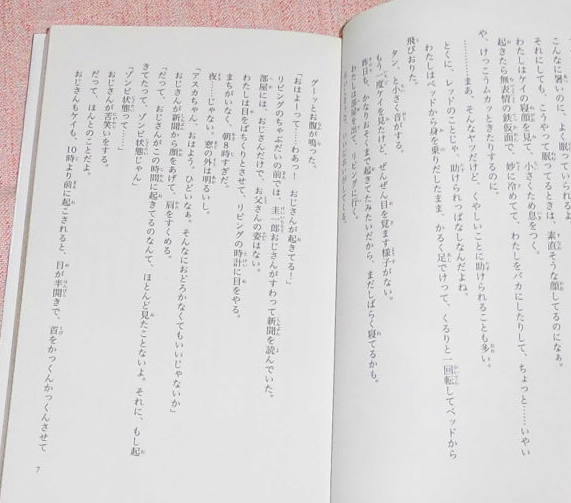 こんなに
それにしても、こうやって眠ってるときは、素直そうな顔してるのになぁ。
わたしはケイの寝顔を見て、小さくため息をつく。
起きたら無表情の鉄仮面で、妙に冷めてて、わたしをバカにしたりして、ちょっと……いやい
や、けっこうムカッときたりするのに。
…………まあ、そんなヤツだけど、くやしいことに助けられることも多い。
とくに、レッドのことじゃ、助けられっぱなしなんだよね。
わたしはベッドから身を乗りだしたまま、かるく足でけって、くるりと一回転してベッドから
飛びおりた。
タン、と小さく音がする。
もう一度ケイを見たけど、ぜんぜん目を覚ます様子がない。
昨日も、かなりおそくまで起きてたみたいだから、まだしばらく寝てるかも。
わたしは部屋を出て、リビングに行く。
グーッとお腹が鳴った。
「おはよーって……わあっ！　おじさんが起きてる！」
リビングのちゃぶだいの前では、圭一郎おじさんがすわって新聞を読んでいた。
部屋には、おじさんだけで、お父さんの姿はない。
わたしは目をぱちくりとさせて、リビングの時計に目をやる。
まちがいなく、朝8時すぎだ。
夜……じゃない。窓の外は明るいし。
「アスカちゃん、おはよう。ひどいなぁ。そんなにおどろかなくてもいいじゃないか」
おじさんが新聞から顔をあげて、肩をすくめる。
「だって、おじさんがこの時間に起きてるのなんて、ほとんど見たことないよ。それに、もし起
きてたって、ゾンビ状態じゃん」
「ゾンビ状態って……」
おじさんが苦笑いをする。
だって、ほんとのことだよ。
おじさんもケイも、10時より前に起こされると、目が半開きで、首をかっくんかっくんさせて
7